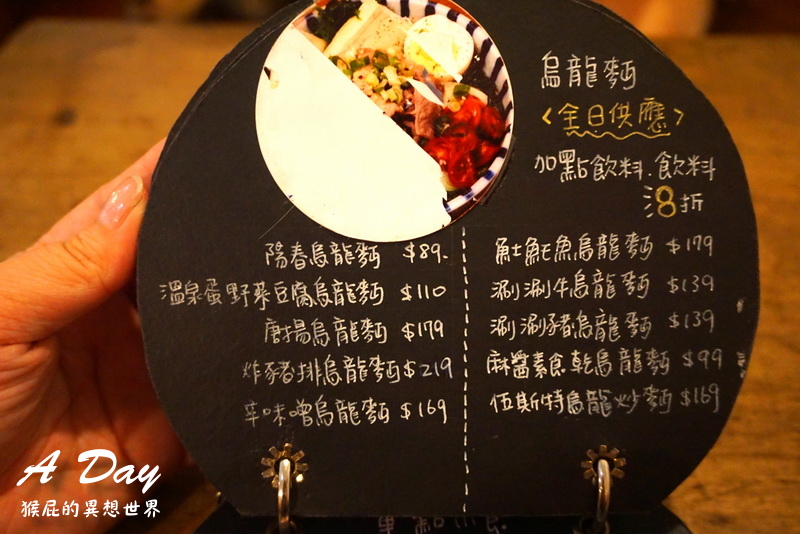 烏龍麵
<全日供應>
加點飲料.飲料
8折
陽春烏龍麵 $89.
溫泉蛋野菜豆腐烏龍麵 $110
唐揚烏龍麵 $179
炸豬排烏龍麵$219
辛味噌烏龍麵 $169
魠魚烏龍麵 $179
涮涮牛烏龍麵 $139
涮涮豬烏龍麵 $139
麻醬素食乾烏龍麵 $99
伍斯特烏龍炒麵 $169
A Day
猴屁的異想世界